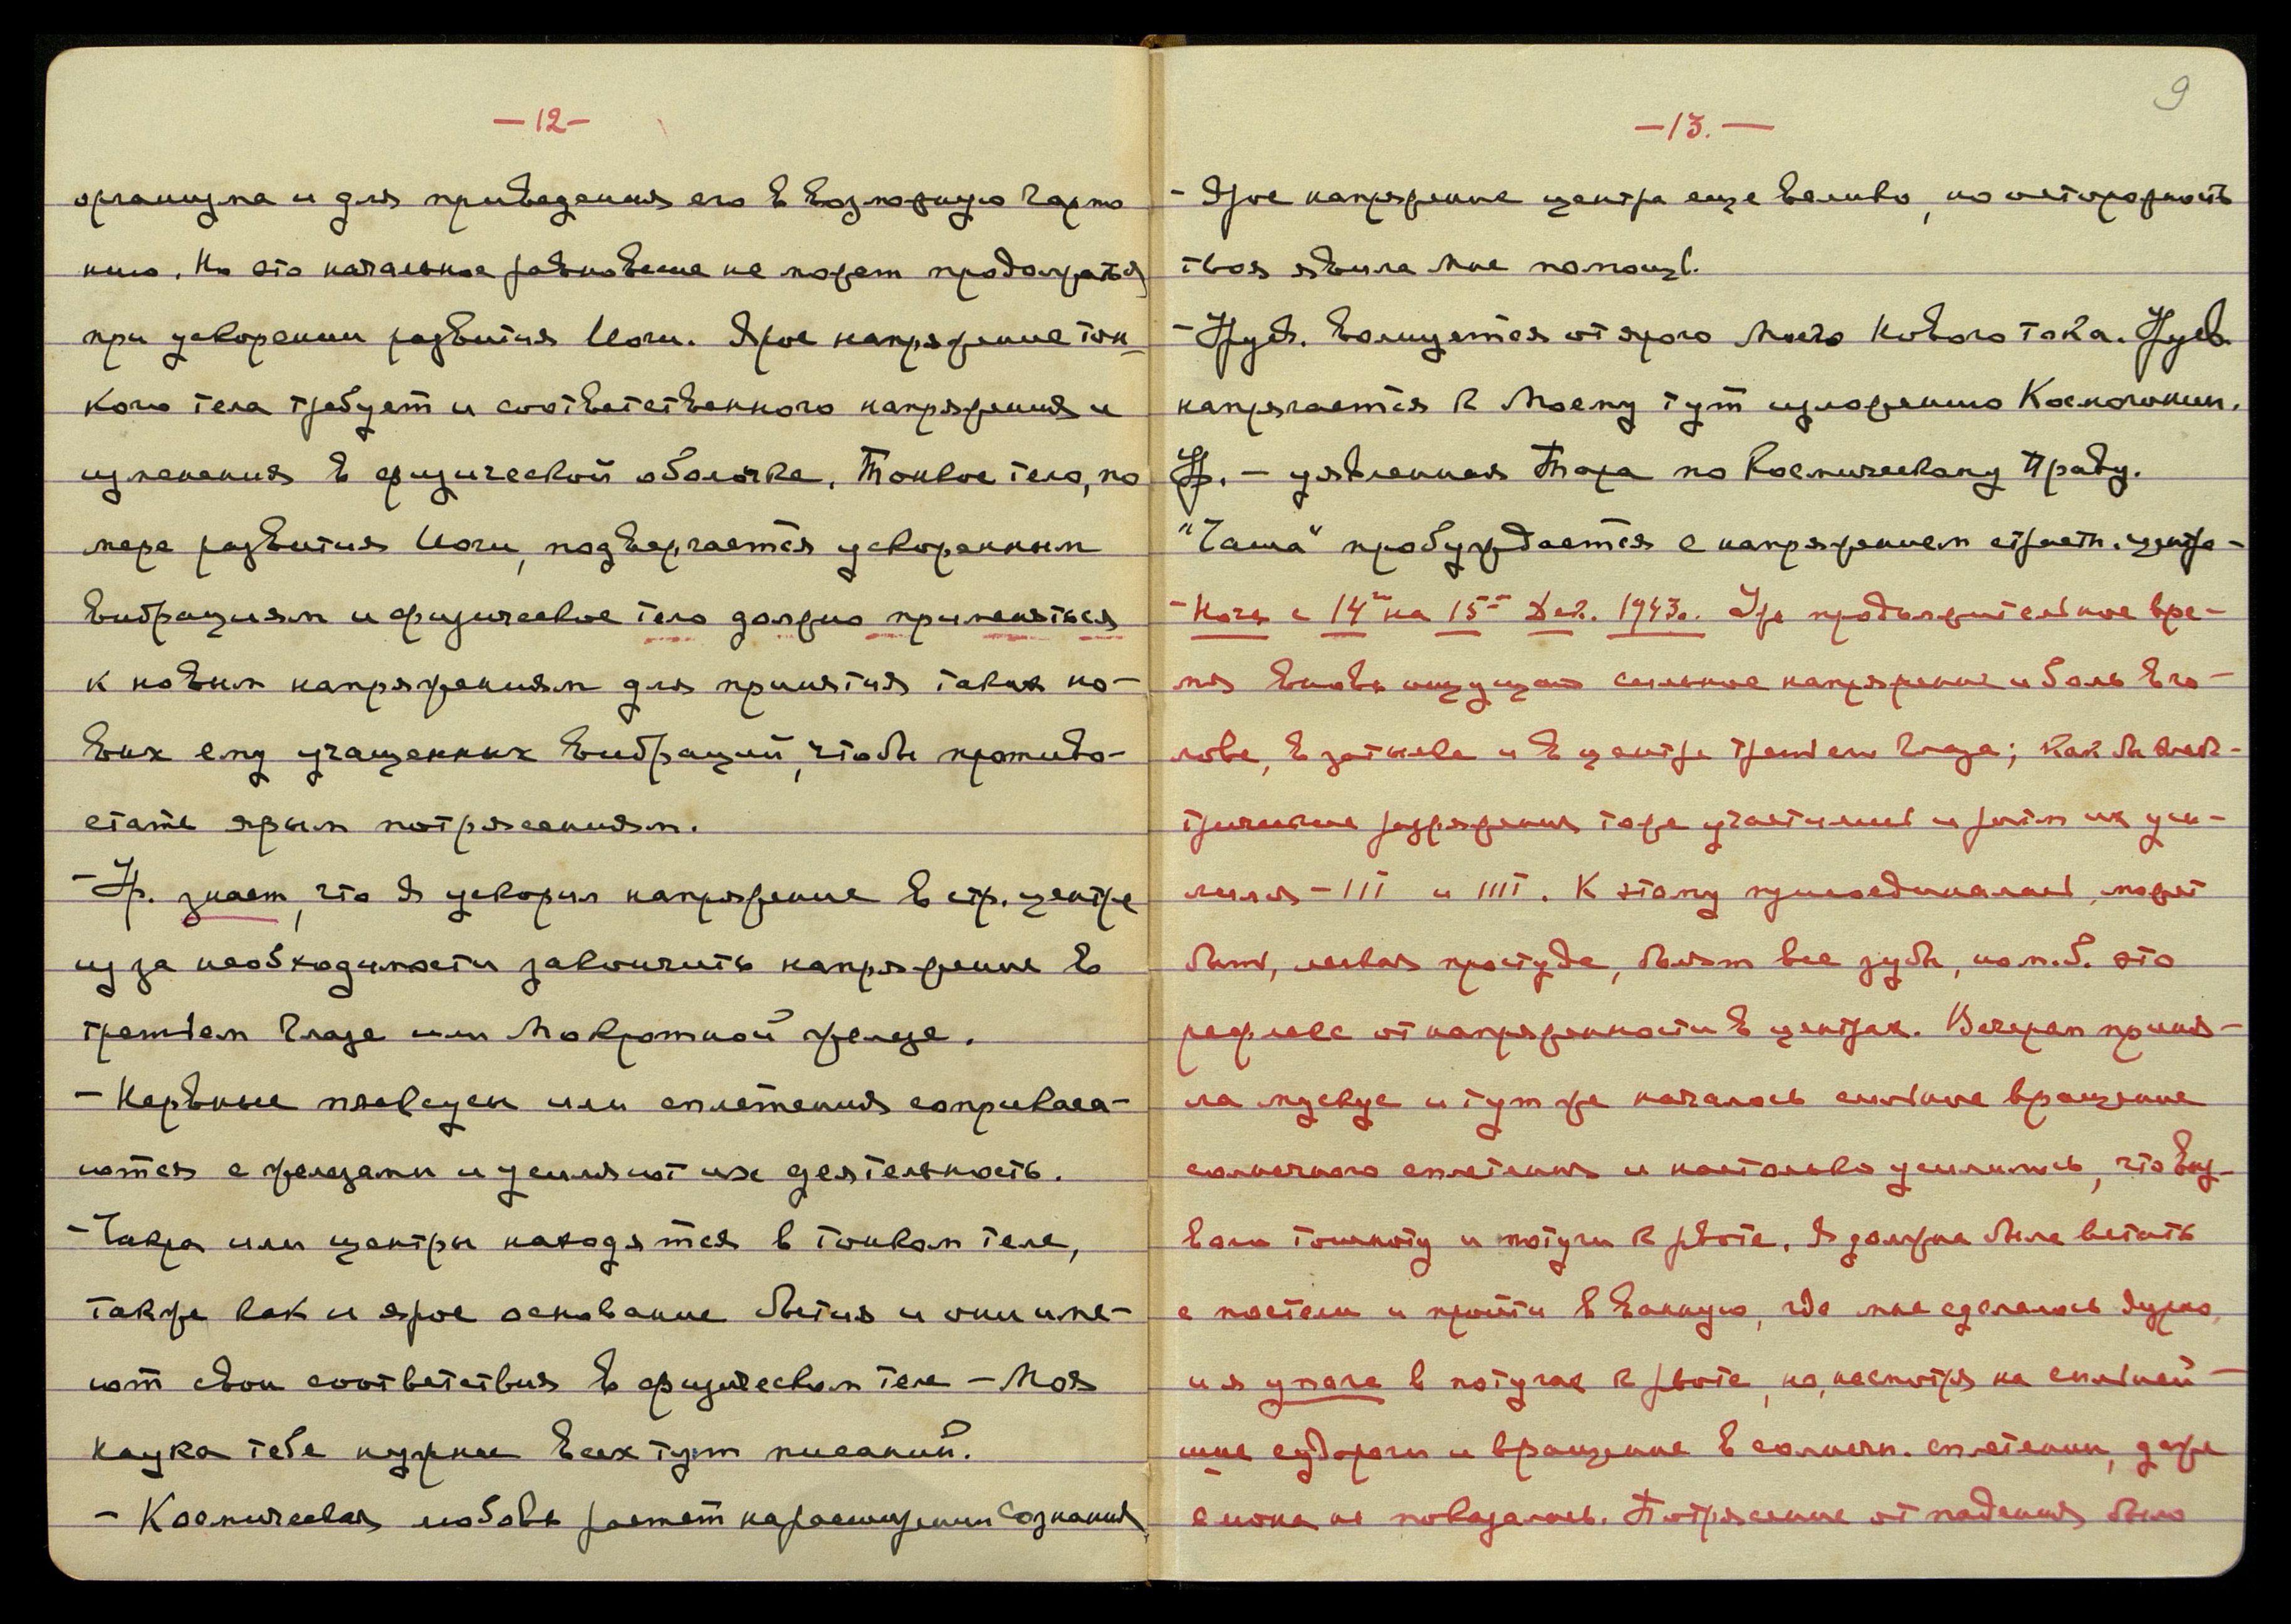 -12-
организма и для приведения его в возможную гармо
нию. Но это начальное равновесие не может продолжаться
при ускорении развития Йоги. Ярое напряжение тон-
кого тела требует и соответственного напряжения и
изменения в физической оболочке. Тонкое тело, по
мере развития Йоги, подвергается ускоренным
вибрациям и физическое тело должно применяться
к новым напряжениям для принятия таких но-
вых ему учащенных вибраций, чтобы противо-
стать ярым потрясениям.
- Ур. знает, что Я ускорил напряжение в стр. центре
из за необходимости закончить напряжение в
третьем Глазе или Мокротной железе.
- Нервные плексусы или сплетения соприкаса-
ются с железами и усиляют их деятельность.
- Чакра или центры находятся в тонком теле,
также как и ярое основание бытия и они име-
ют свои соответствия в физическом теле - Моя
наука тебе нужнее всех тут писаний.
- Космическая любовь растет на расширении Сознания
9
-13.-
- Ярое напряжение центра еще велико, но осторожность
твоя явила Мне помощь.
- Урув. волнуется от ярого Моего Нового тока. Урув.
напрягается к Моему тут изложению Космогонии.
Ур. - уявленная Тара по Космическому Праву.
"Чаша" пробуждается с напряжением центра -
- Ночь с 14го на 15ое Дек. 1943г. Уже продолжительное вре-
мя вновь ощущаю сильное напряжение и боль в го-
лове, в затылке и в центре третьего Глаза; как бы элек-
трические разряжения тоже участились и ритм их уси-
лился - III и IIII. К этому присоединилась, может
быть, легкая простуда, болят все зубы, но м.б. это
рефлекс от напряженности в центрах. Вечером приня-
ла мускус и тут же началось сильное вращение
солнечного сплетения и настолько усилилось, что выз-
вало тошноту и потуги к рвоте. Я должна была встать
с постели и пройти в ванную, где мне сделалось дурно,
и я упала в потугах к рвоте, но, несмотря на сильней-
шие судороги и вращение в солнечн. сплетении, даже
слюна не показалась. Потрясение от падения было